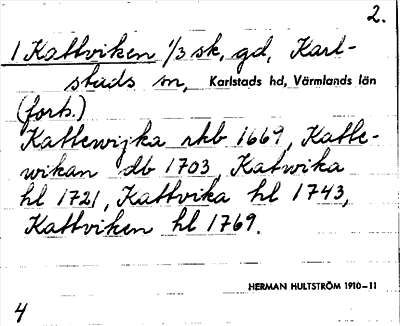 2.
1 Kattviken 1/3 sk, gd, Karl-
stads sn, Karlstads hd, Värmlands län
(forts.)
Kattewijka rkb 1669, Katte-
wikan db 1703, Katwika
hl 1721, Kattvika hl 1743,
Kattviken hl 1769.
HERMAN HULTSTRÖM 1910-11
4